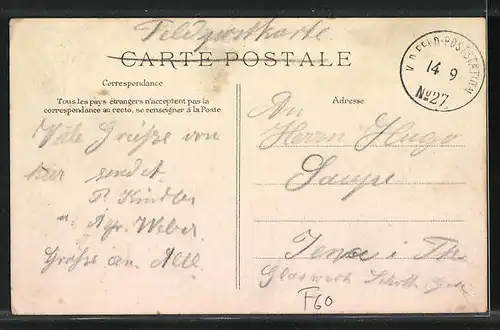 Feldpostkarte
CARTE POSTALE
K.D. FELD-POSTSTATION
14 9
No 27.
Correspondance
Tous les pays étrangers n'acceptent pas la
correspondance au recto, se renseigner à la Poste
Viele Grüsse von
hier sendet
P. Kindler
u. Agr. Weber
Grüsse an All
Adresse
An
Herrn Hugo
Saupe
Jena i Th
Glaswerk Schott
F60